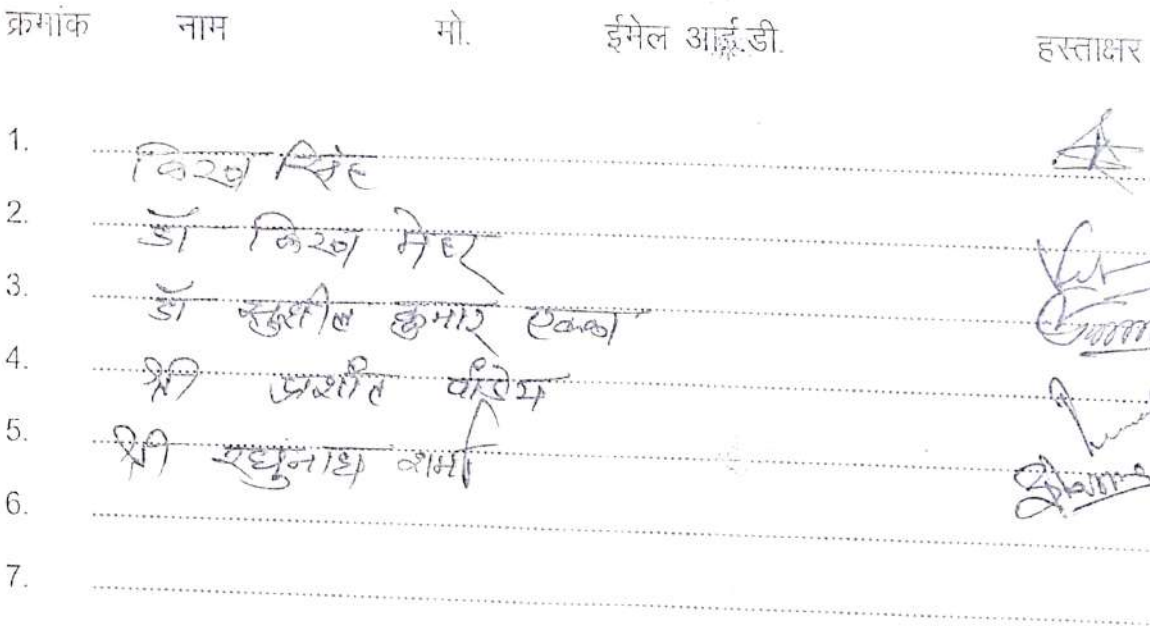 क्रमांक नाम मो. ईमेल आई.डी. हस्ताक्षर
1. किरण सिंह
2. डॉ किरण मेहर
3. डॉ सुशील कुमार एक्का
4. श्री प्रशांत पांडेय
5. श्री रघुनाथ शर्मा
6.
7.